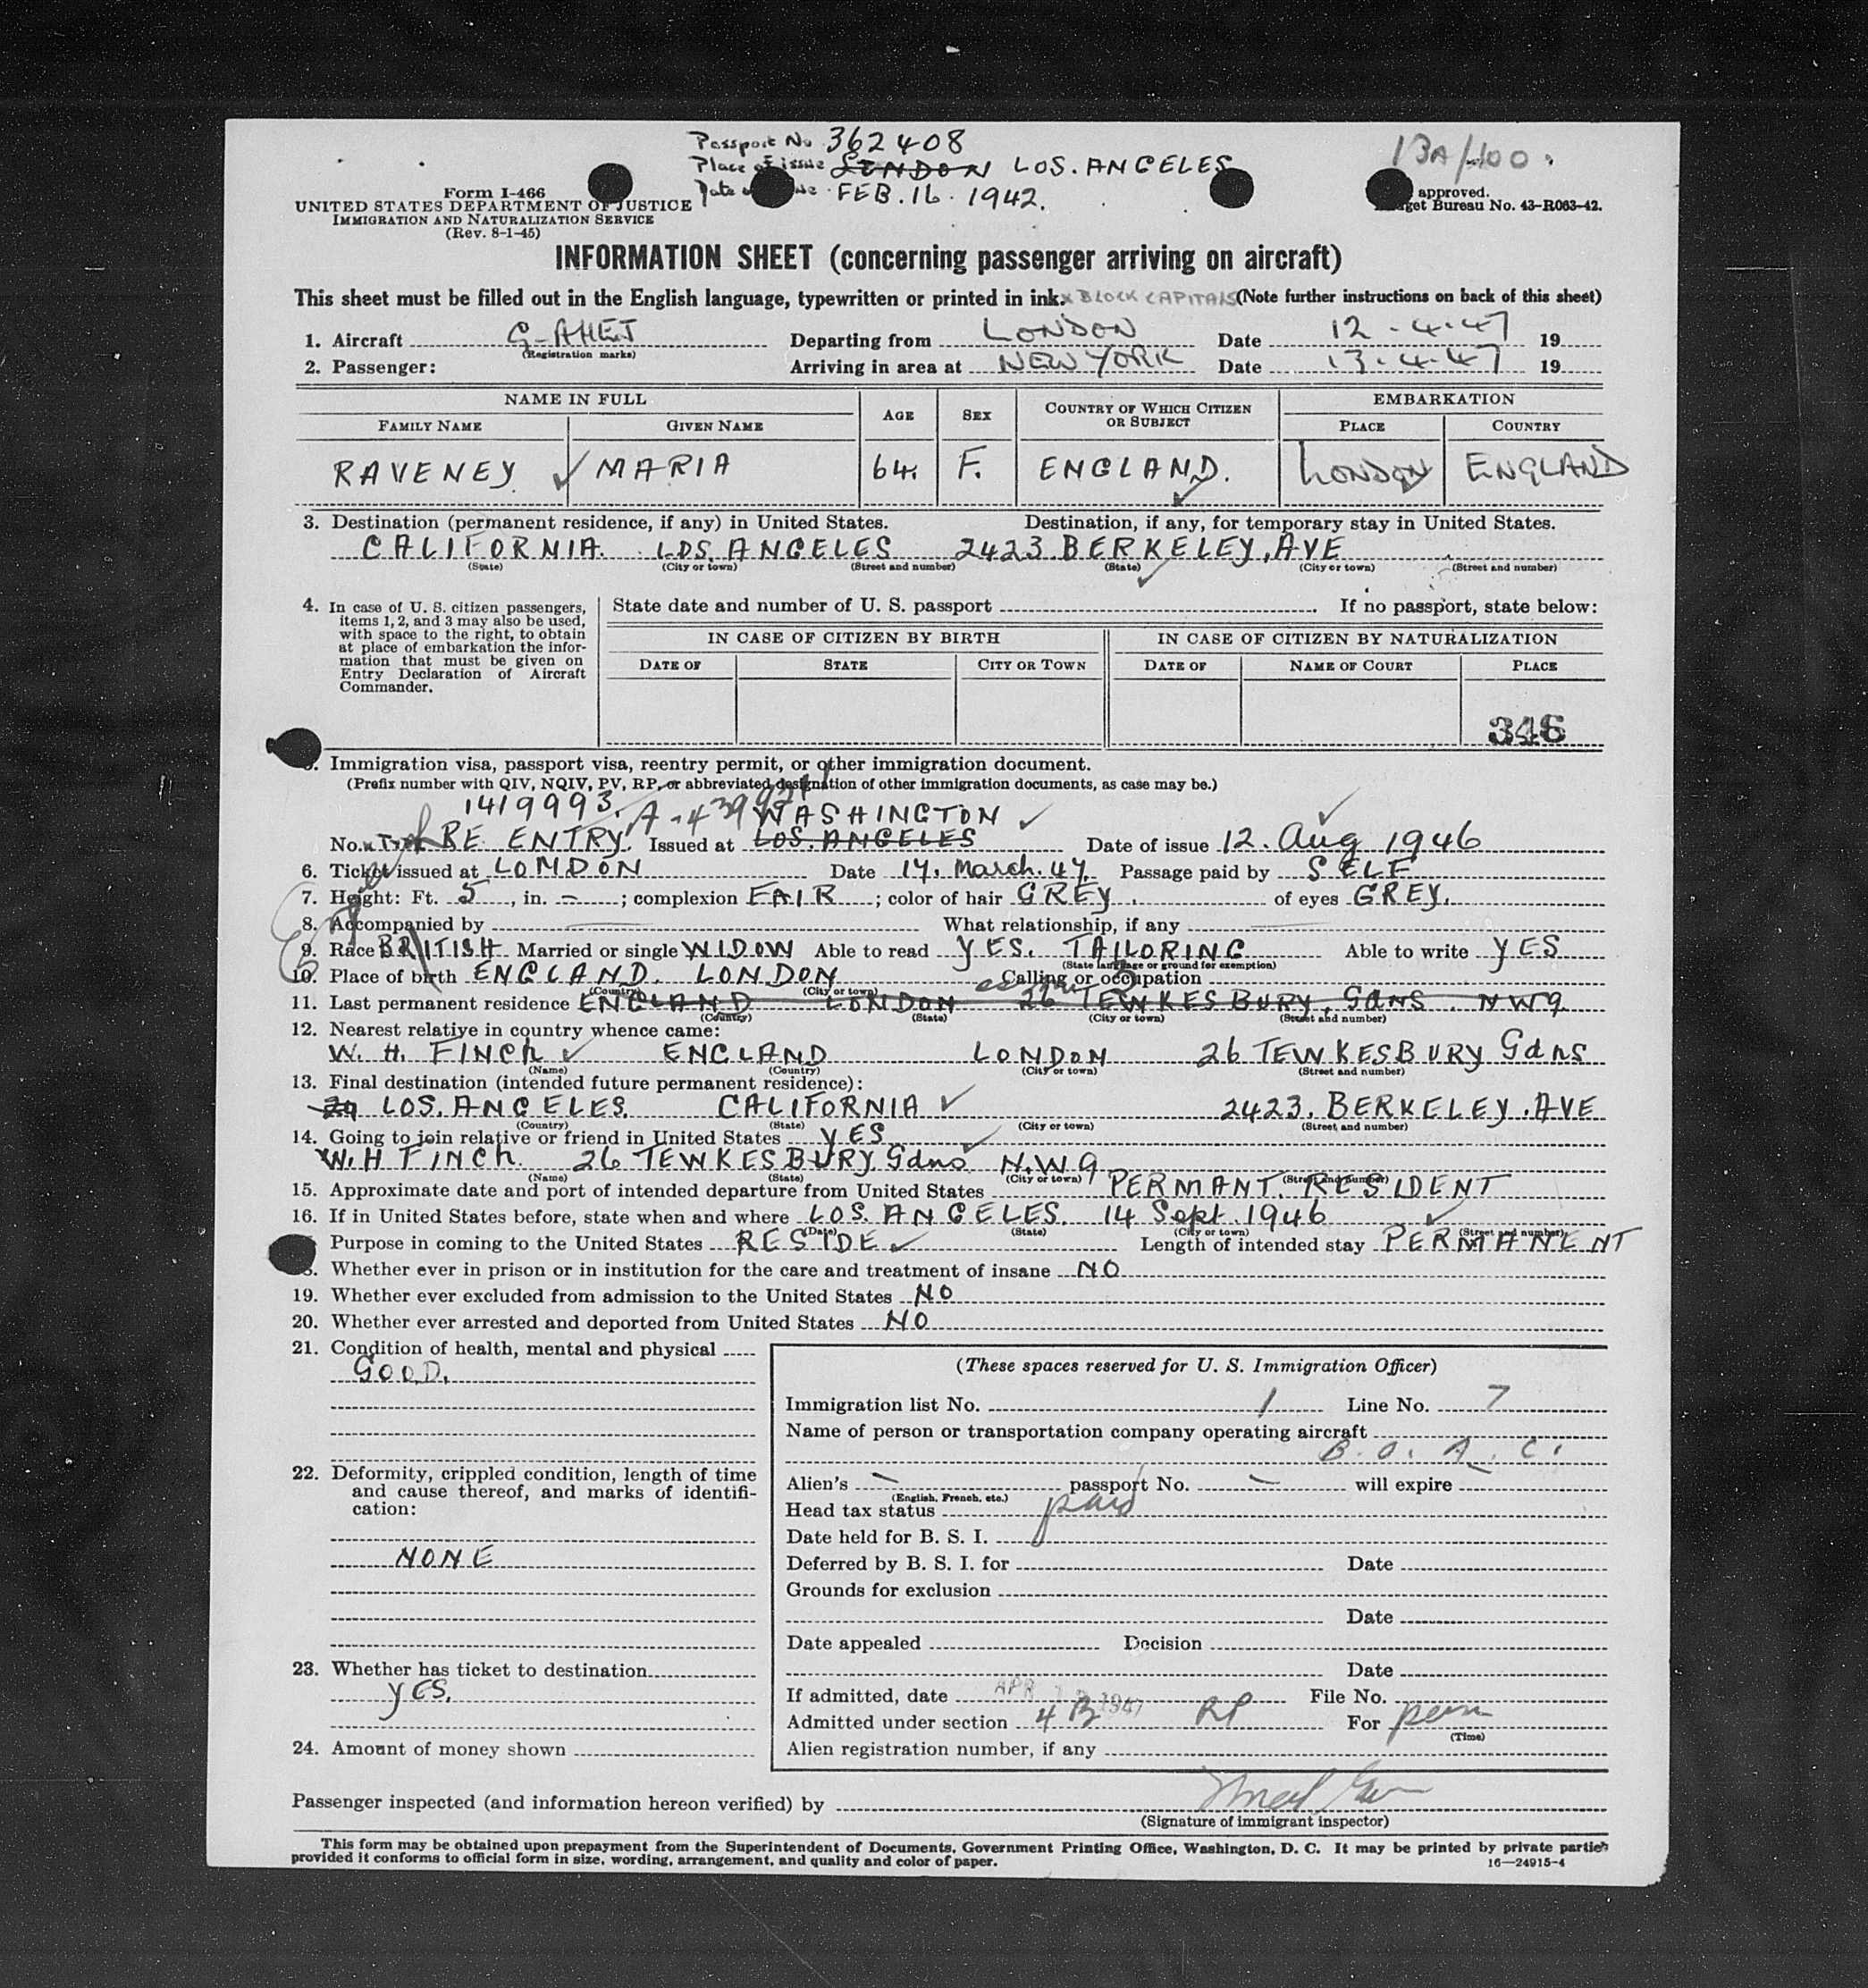 Passport No 362408
Place of issue LONDON LOS. ANGELES
13A/100.
Date FEB. 16. 1942.
Form I-466
UNITED STATES DEPARTMENT OF JUSTICE
IMMIGRATION AND NATURALIZATION SERVICE
(Rev. 8-1-45)
approved.
get Bureau No. 43-R063-42.
INFORMATION SHEET (concerning passenger arriving on aircraft)
This sheet must be filled out in the English language, typewritten or printed in ink. x BLOCK CAPITALS (Note further instructions on back of this sheet)
1. Aircraft G-AHEJ Departing from LONDON Date 12-4-47 19
(Registration marks)
2. Passenger: Arriving in area at NEW YORK Date 13-4-47 19
NAME IN FULL AGE SEX COUNTRY OF WHICH CITIZEN OR SUBJECT EMBARKATION
FAMILY NAME GIVEN NAME PLACE COUNTRY
RAVENEY ✓ MARIA 64. F. ENGLAND. LONDON ENGLAND
3. Destination (permanent residence, if any) in United States. Destination, if any, for temporary stay in United States.
CALIFORNIA. LOS. ANGELES 2423 BERKELEY, AVE
(State) (City or town) (Street and number) (State) (City or town) (Street and number)
4. In case of U. S. citizen passengers,
items 1, 2, and 3 may also be used,
with space to the right, to obtain
at place of embarkation the infor-
mation that must be given on
Entry Declaration of Aircraft
Commander.
State date and number of U. S. passport . If no passport, state below:
IN CASE OF CITIZEN BY BIRTH IN CASE OF CITIZEN BY NATURALIZATION
DATE OF STATE CITY OR TOWN DATE OF NAME OF COURT PLACE
346
Immigration visa, passport visa, reentry permit, or other immigration document.
(Prefix number with QIV, NQIV, PV, RP, or abbreviated designation of other immigration documents, as case may be.)
1419993. WASHINGTON ✓
No. RE ENTRY. Issued at LOS. ANGELES Date of issue 12. Aug 1946
6. Ticket issued at LONDON Date 17. March. 47. Passage paid by SELF
7. Height: Ft. 5, in. –; complexion FAIR; color of hair GREY. of eyes GREY.
8. Accompanied by What relationship, if any
9. Race BRITISH Married or single WIDOW Able to read YES. TAILORING Able to write YES
(State language or ground for exemption)
10. Place of birth ENGLAND. LONDON Calling or occupation
(Country) (City or town)
11. Last permanent residence ENGLAND LONDON 26 TEWKESBURY, Gdns. NW9
(Country) (State) (City or town) (Street and number)
12. Nearest relative in country whence came:
W. H. FINCH ✓ ENGLAND LONDON 26 TEWKESBURY Gdns
(Name) (Country) (City or town) (Street and number)
13. Final destination (intended future permanent residence):
LOS. ANGELES. CALIFORNIA ✓ 2423. BERKELEY. AVE
(Country) (State) (City or town) (Street and number)
14. Going to join relative or friend in United States YES
W. H FINCH. 26 TEWKESBURY. Gdns N.W 9
(Name) (State) (City or town) (Street and number)
15. Approximate date and port of intended departure from United States PERMANT. RESIDENT
16. If in United States before, state when and where LOS. ANGELES. 14 Sept. 1946
(Date) (State) (City or town) (Street and number)
Purpose in coming to the United States RESIDE ✓ Length of intended stay PERMANENT
Whether ever in prison or in institution for the care and treatment of insane NO
19. Whether ever excluded from admission to the United States NO
20. Whether ever arrested and deported from United States NO
21. Condition of health, mental and physical
GOOD.
22. Deformity, crippled condition, length of time
and cause thereof, and marks of identifi-
cation:
NONE
23. Whether has ticket to destination
YES.
24. Amount of money shown
(These spaces reserved for U. S. Immigration Officer)
Immigration list No. 1 Line No. 7
Name of person or transportation company operating aircraft
B. O. A. C.
Alien's – passport No. – will expire –
(English, French, etc.)
Head tax status paid
Date held for B. S. I.
Deferred by B. S. I. for Date
Grounds for exclusion
Date
Date appealed Decision
Date
If admitted, date APR 1947 File No.
Admitted under section 4 B RP For perm
(Time)
Alien registration number, if any
Passenger inspected (and information hereon verified) by
(Signature of immigrant inspector)
This form may be obtained upon prepayment from the Superintendent of Documents, Government Printing Office, Washington, D. C. It may be printed by private parties
provided it conforms to official form in size, wording, arrangement, and quality and color of paper.
16—24915-4